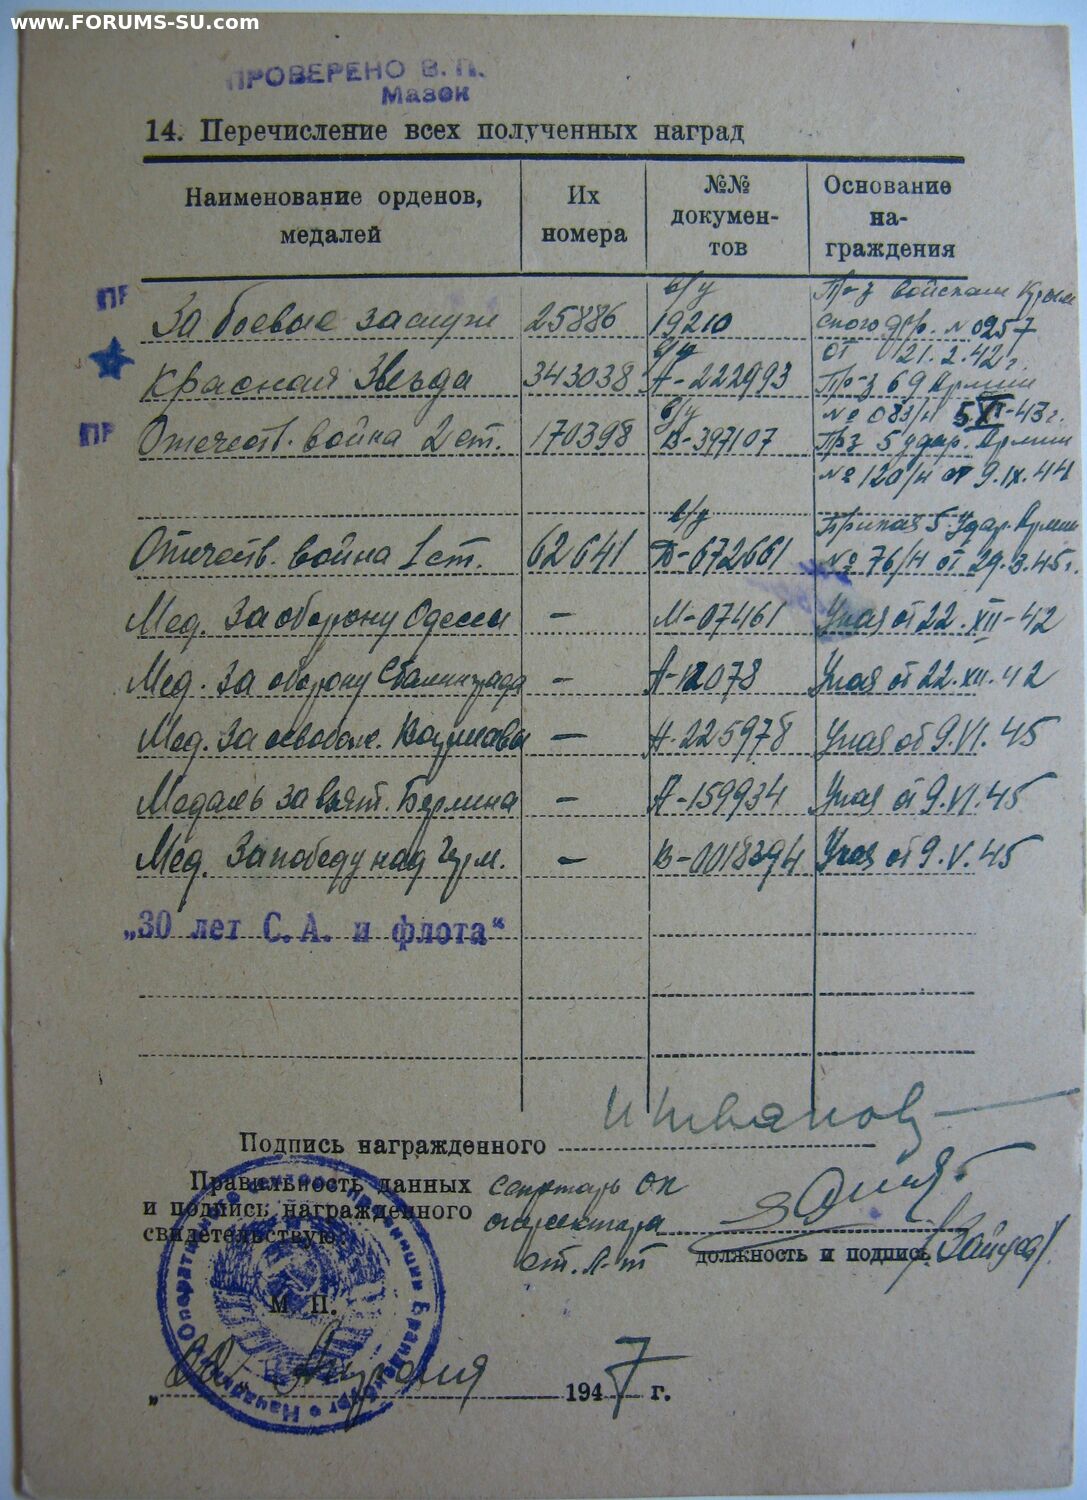 www.FORUMS-SU.com
ПРОВЕРЕНО В. П.
Мазок
14. Перечисление всех полученных наград
Наименование орденов, медалей
Их номера
№№ докумен-тов
Основание на-граждения
ПР
За боевые заслуги 25886 в/у 19210 Пр-з войскам Крым
ского фр. № 0257
от 21.2.42 г.
Красная Звезда 343038 А-222993 Пр-з 69 Армии
№ 083/н 5 XI-43 г.
ПР
Отечеств. война 2 ст. 170398 в/у В-397107 Пр-з 5 удар. Армии
№ 120/н от 9.IX.44
Отечеств. война 1 ст. 62641 в/у 672661 Приказ 5 Удар. Армии
№ 76/н от 29.3.45 г.
Мед. За оборону Одессы – М-07461 Указ от 22.XII-42
Мед. За оборону Сталинграда – А-12078 Указ от 22.XII.42
Мед. За освобож. Варшавы – А-225978 Указ от 9.VI.45
Медаль за взят. Берлина – А-159934 Указ от 9.VI.45
Мед. За победу над Герм. – В-0018394 Указ от 9.V.45
„30 лет С. А. и флота“
Подпись награжденного
Правильность данных
и подпись награжденного
свидетельствую:
секретарь
ст. л-т
должность и подпись
М. П.
„ Апреля 1947 г.